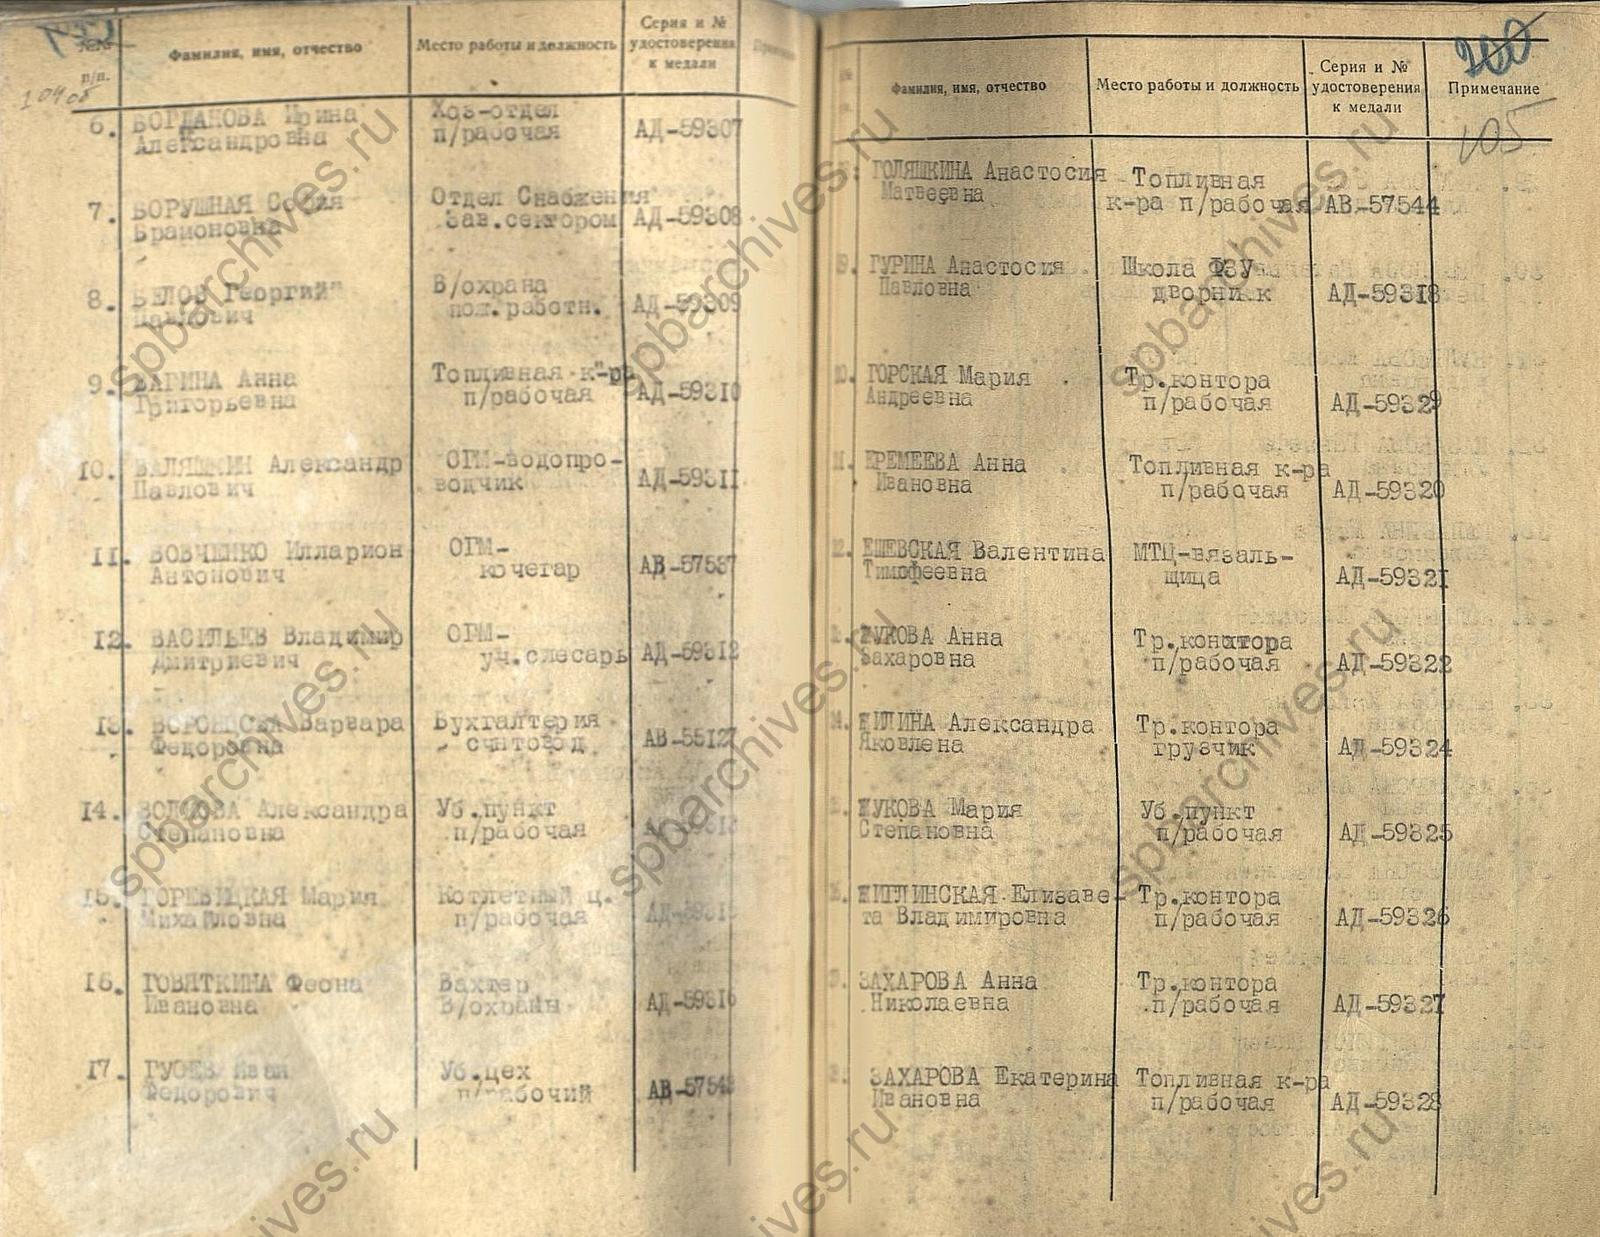 №№ п/п.
Фамилия, имя, отчество
Место работы и должность
Серия и № удостоверения к медали
6. БОГДАНОВА Ирина
Александровна
Хоз-отдел
п/рабочая
АД-59307
7. БОРУШНАЯ София
Абрамоновна
Отдел Снабжения
Зав.сектором
АД-59308
8. БЕЛОВ Георгий
Павлович
В/охрана
пож.работн.
АД-59309
9. ВАГИНА Анна
Григорьевна
Топливная к-ра
п/рабочая
АД-59310
10. ВАЛЯШКИН Александр
Павлович
ОГМ-водопро-
водчик
АД-59311
11. ВОВЧЕНКО Илларион
Антонович
ОГМ-
кочегар
АВ-57537
12. ВАСИЛЬЕВ Владимир
Дмитриевич
ОГМ-
уч.слесарь
АД-59312
13. Варвара
Федоровна
Бухгалтерия
счетовод
АВ-55127
14. ВОЛКОВА Александра
Степановна
Уб.пункт
п/рабочая
15. ГОРЕВИЦКАЯ Мария
Михайловна
Котлетный ц.
п/рабочая
16. ГОВЯТКИНА Феона
Ивановна
Вахтер
В/охраны
АД-59316
17. ГУСЕВ Иван
Федорович
Уб.цех
п/рабочий
Фамилия, имя, отчество
Место работы и должность
Серия и № удостоверения к медали
Примечание
200
105
ГОЛЯШКИНА Анастосия
Матвеевна
Топливная
к-ра п/рабочая
АВ-57544
ГУРИНА Анастосия
Павловна
Школа ФЗУ
дворник
АД-59318
ГОРСКАЯ Мария
Андреевна
Тр.контора
п/рабочая
АД-59329
ЕРЕМЕЕВА Анна
Ивановна
Топливная к-ра
п/рабочая
АД-59320
ЕШЕВСКАЯ Валентина
Тимофеевна
МТЦ-вязаль-
щица
АД-59321
ЖУКОВА Анна
Захаровна
Тр.контора
п/рабочая
АД-59322
ЖИЛИНА Александра
Яковлена
Тр.контора
грузчик
АД-59324
ЖУКОВА Мария
Степановна
Уб.пункт
п/рабочая
АД-59325
ЖИГЛИНСКАЯ Елизаве-
та Владимировна
Тр.контора
п/рабочая
АД-59326
ЗАХАРОВА Анна
Николаевна
Тр.контора
п/рабочая
АД-59327
ЗАХАРОВА Екатерина
Ивановна
Топливная к-ра
п/рабочая
АД-59328
spbarchives.ru